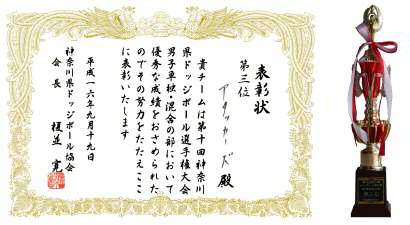 表彰状
第三位
アタッカーズ殿
貴チームは第十回神奈川
県ドッジボール選手権大会
男子単独・混合の部において
優秀な成績をおさめられた
のでその努力をたたえここ
に表彰いたします
平成一六年九月十九日
神奈川県ドッジボール協会
会長